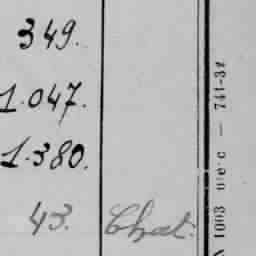 349.
1.047.
1.380.
43. Chat.
A 1003 — 741-32